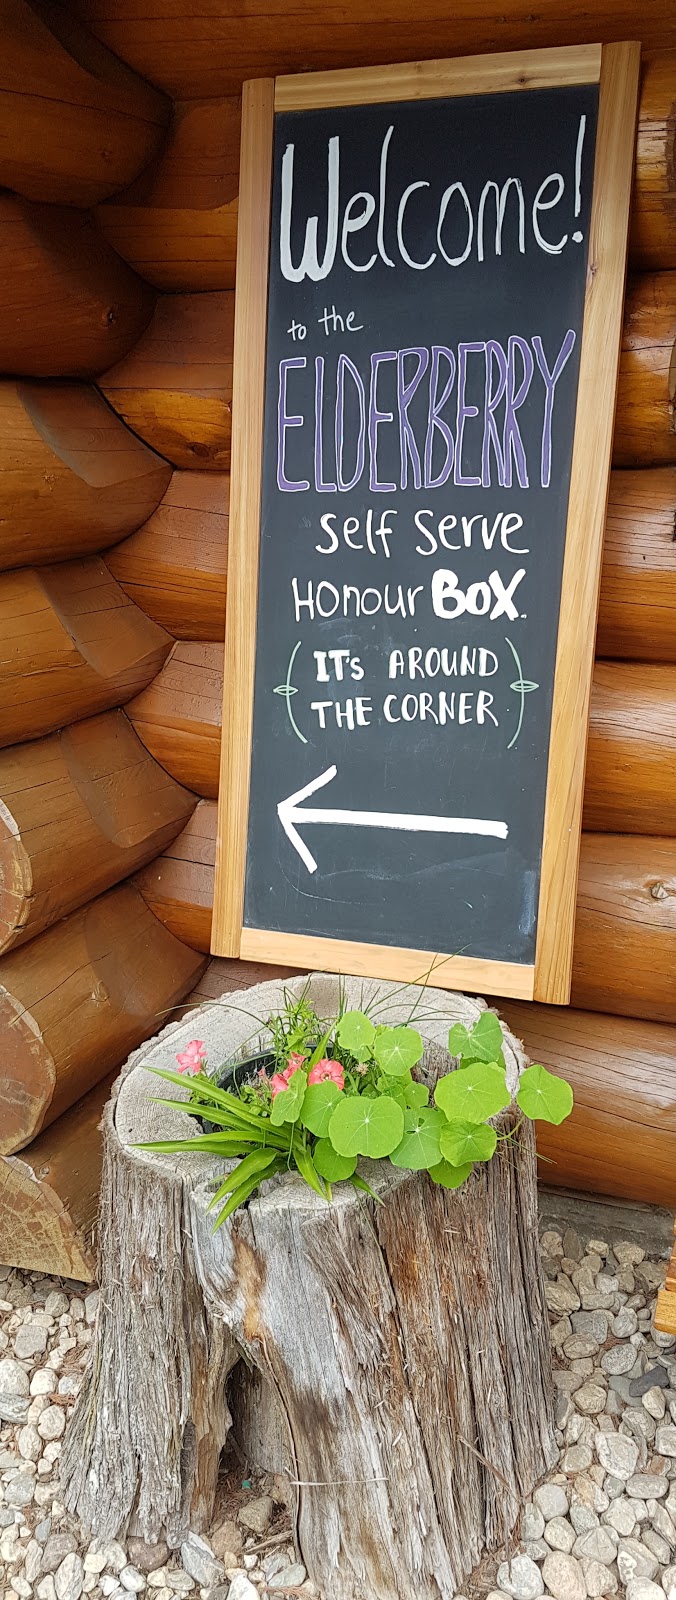 Welcome!
to the
ELDERBERRY
Self Serve
Honour BOX.
(IT's AROUND
THE CORNER)